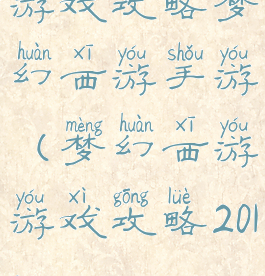 游戏攻略梦
huàn xī yóu shǒu yóu
幻西游手游
mèng huàn xī yóu
（梦幻西游
yóu xì gōng lüè
游戏攻略201